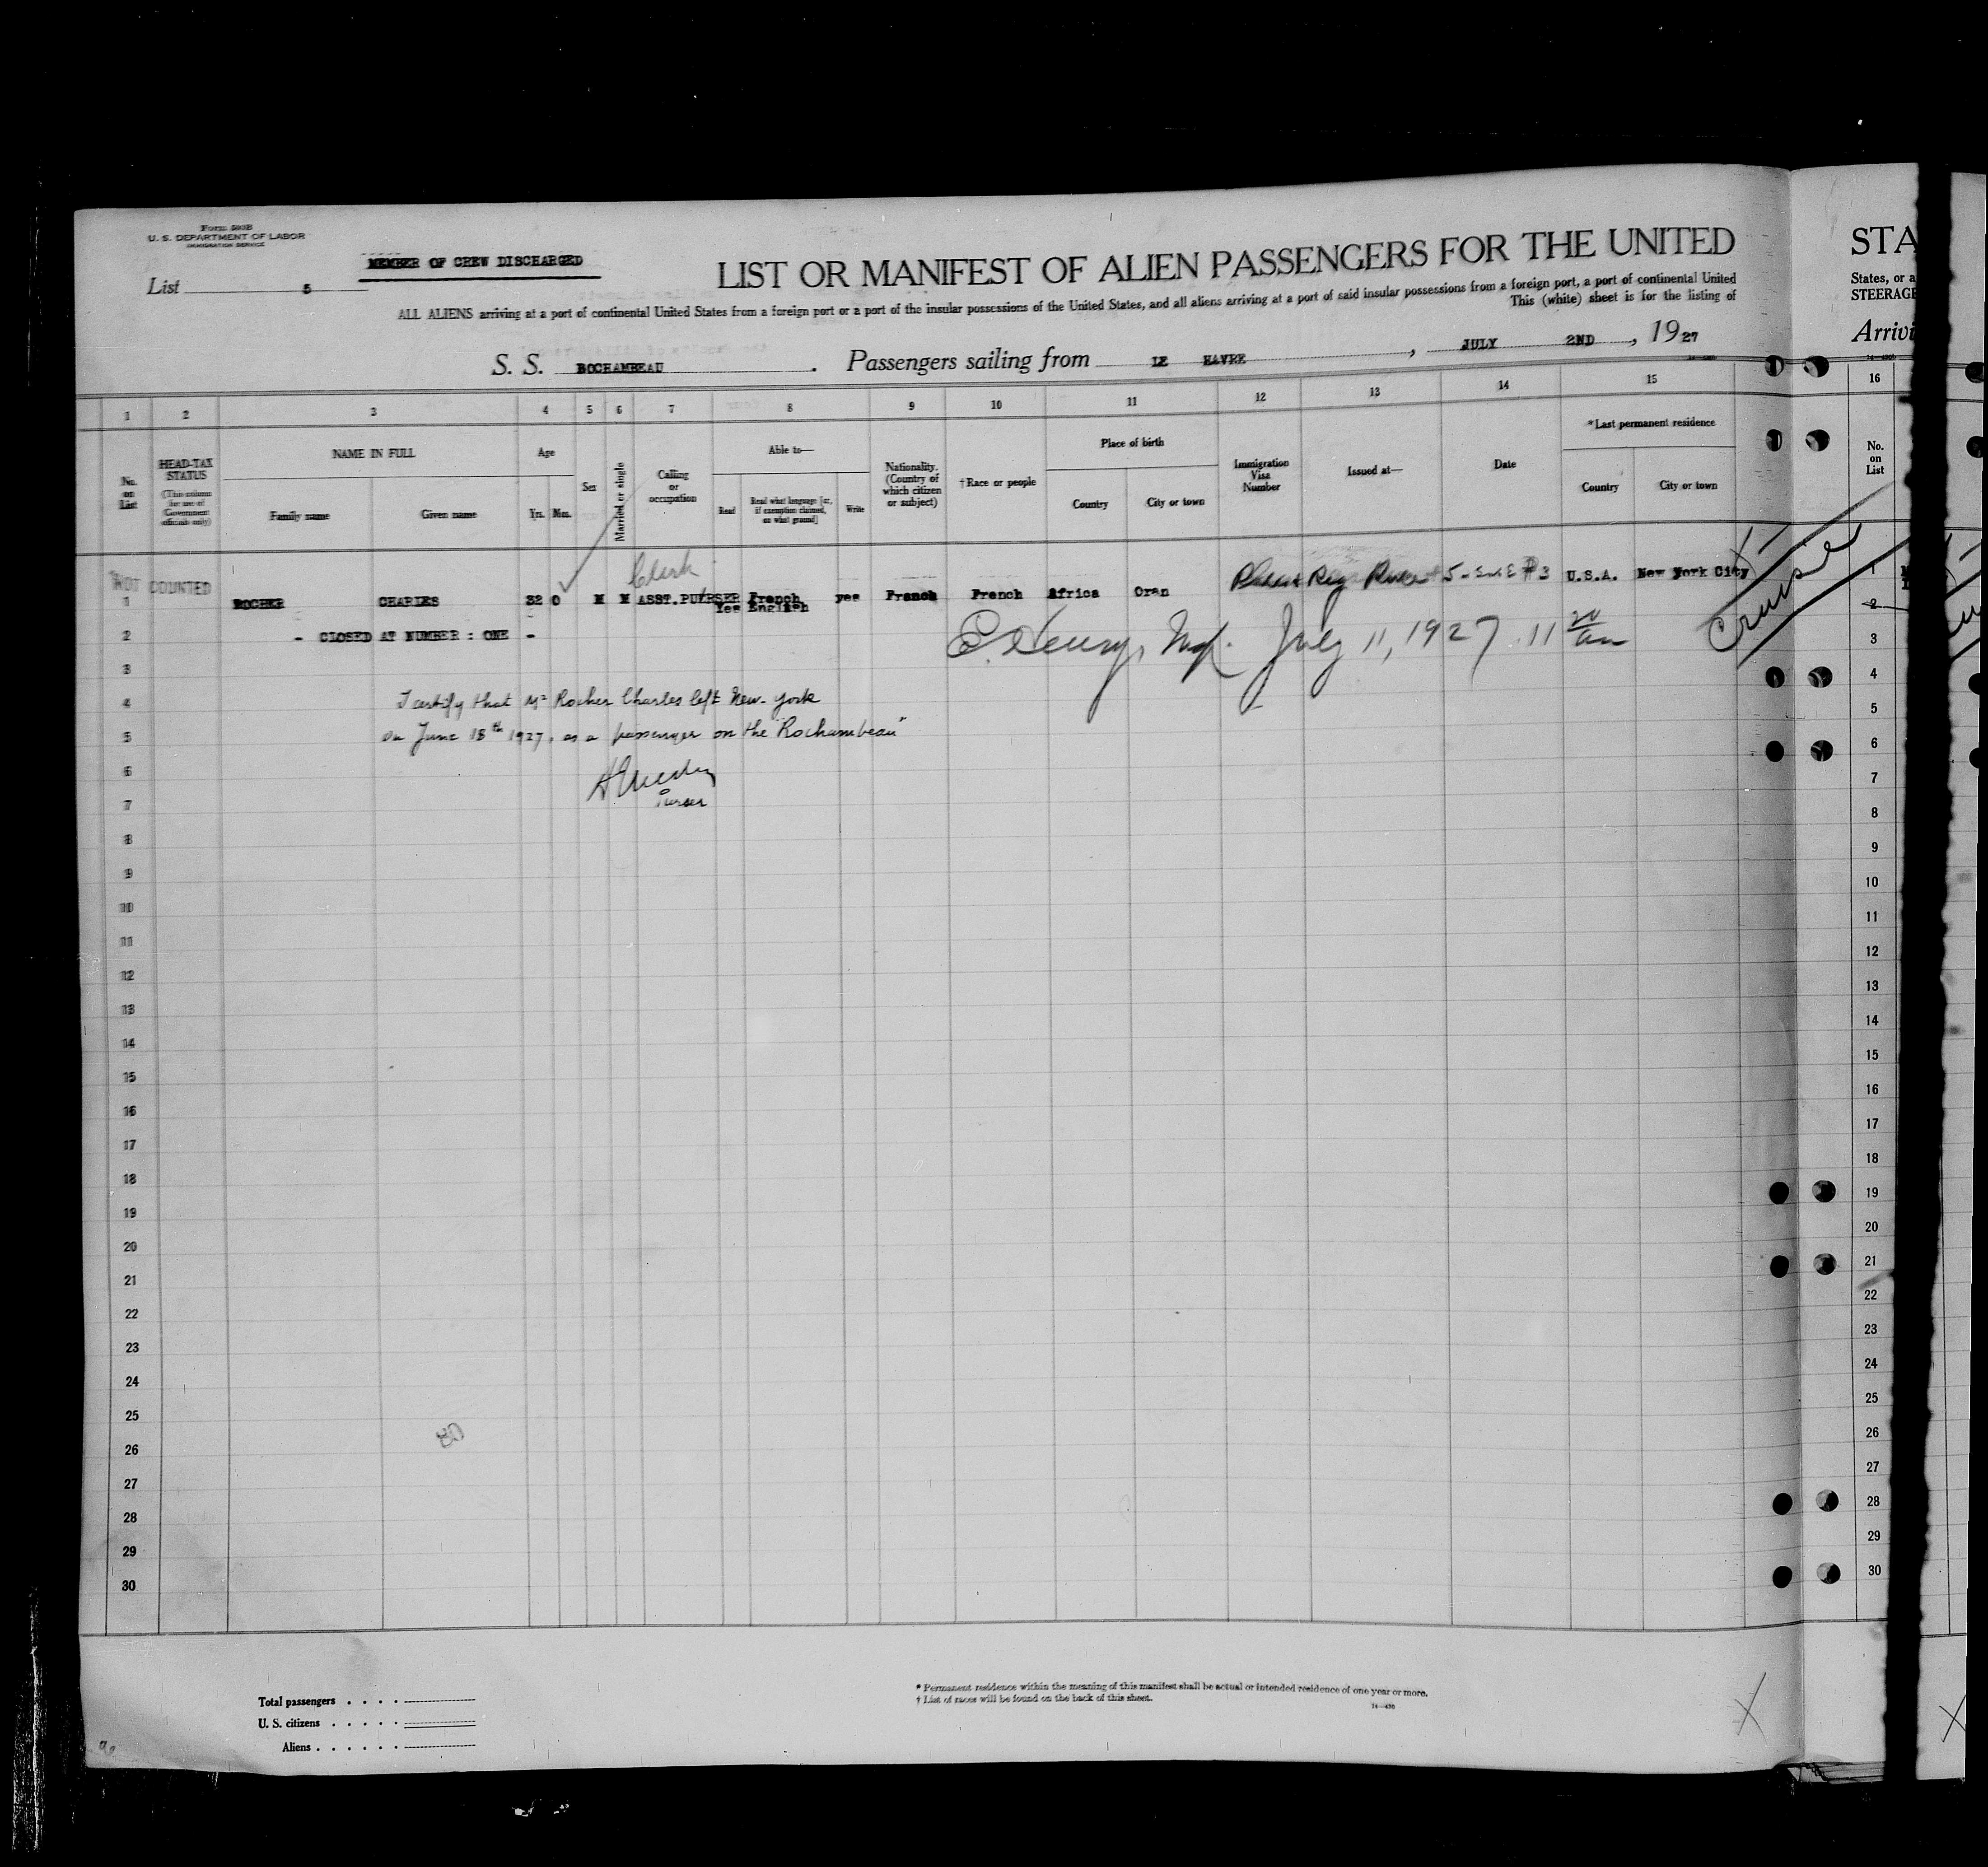 Form 500B
U. S. DEPARTMENT OF LABOR
IMMIGRATION SERVICE
MEMBER OF CREW DISCHARGED
List 5
LIST OR MANIFEST OF ALIEN PASSENGERS FOR THE UNITED
STA
ALL ALIENS arriving at a port of continental United States from a foreign port or a port of the insular possessions of the United States, and all aliens arriving at a port of said insular possessions from a foreign port, a port of continental United
States, or a
This (white) sheet is for the listing of
STEERAGE
S. S. ROCHAMBEAU . Passengers sailing from LE HAVRE , JULY 2ND , 1927
Arrivi
1 2 3 4 5 6 7 8 9 10 11 12 13 14 15 16
No. on List
HEAD-TAX STATUS
(This column for use of Government officials only)
NAME IN FULL
Family name
Given name
Age
Yrs. Mos.
Sex
Married or single
Calling or occupation
Able to—
Read
Read what language [or, if exemption claimed, on what ground]
Write
Nationality. (Country of which citizen or subject)
†Race or people
Place of birth
Country
City or town
Immigration Visa Number
Issued at—
Date
*Last permanent residence
Country
City or town
No. on List
Clerk
NOT COUNTED
1 ROCHER CHARLES 32 0 M M ASST.PURSER Yes French English yes French French Africa Oran U.S.A. New York City
1
2 - CLOSED AT NUMBER : ONE -
July 11, 1927. 11 20 am
2
3
3
4 I certify that Mr Rocher Charles left New-York
4
5 on June 18th 1927, as a passenger on the "Rochambeau"
5
6
6
7 Purser
7
8
8
9
9
10
10
11
11
12
12
13
13
14
14
15
15
16
16
17
17
18
18
19
19
20
20
21
21
22
22
23
23
24
24
25
25
26
26
27
27
28
28
29
29
30
30
Total passengers . . . .
U. S. citizens . . . . .
Aliens . . . . . .
* Permanent residence within the meaning of this manifest shall be actual or intended residence of one year or more.
† List of races will be found on the back of this sheet.